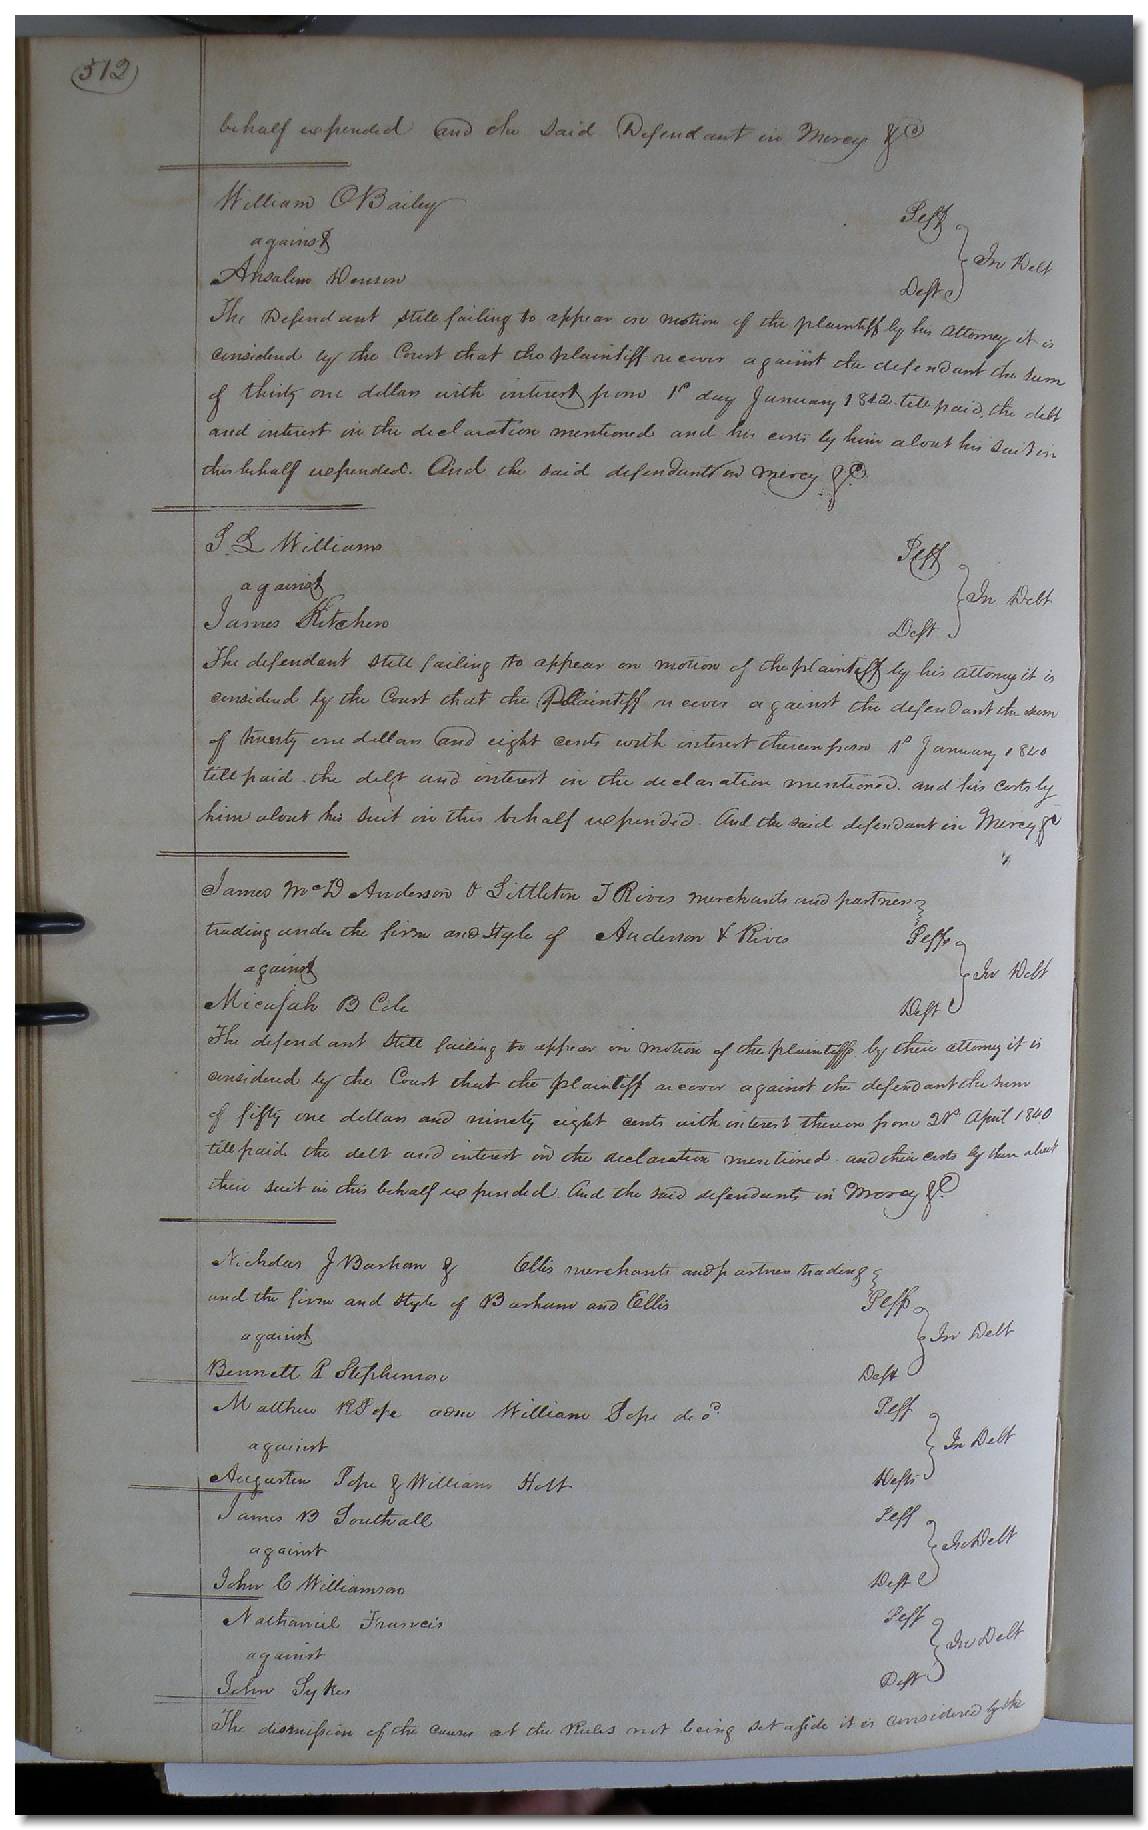 512
behalf expended and the said Defendant in Mercy &c
William O Bailey Plff
against In Debt
Ansalem Denson Deft
The Defendant still failing to appear on motion of the plaintiff by his attorney it is
considered by the Court that the plaintiff recover against the defendant the sum
of thirty one dollars with interest from 1st day January 1842 till paid, the debt
and interest in the declaration mentioned and his costs by him about his suit in
this behalf expended. And the said defendant in mercy &c
J. L Williams Plff
against In Debt
James Kitchen Deft
The defendant still failing to appear on motion of the plaintiff by his attorney it is
considered by the Court that the Plaintiff recover against the defendant the sum
of twenty one dollars and eight cents with interest thereon from 1st January 1840
till paid. the debt and interest in the declaration mentioned. and his costs by
him about his suit in this behalf expended. And the said defendant in Mercy &c
James McD Anderson & Littleton T Rives merchants and partners
trading under the firm and style of Anderson & Rives Plffs
against In Debt
Micajah B Cole Deft
The defendant still failing to appear on motion of the plaintiffs by their attorney it is
considered by the Court that the plaintiff recover against the defendant the sum
of fifty one dollars and ninety eight cents with interest thereon from 21st April 1840
till paid. the debt and interest in the declaration mentioned. and their costs by them about
their suit in this behalf expended. And the said defendants in Mercy &c
Nicholas J Barham & Ellis merchants and partners trading
and the firm and style of Barham and Ellis Plffs
against In Debt
Bennett P Stephenson Deft
Matthew R Pope adm William Pope decd Plff
against In Debt
Augustin Pope & William Holt Defts
James B Southall Plff
against In Debt
John C Williamson Deft
Nathaniel Francis Plff
against In Debt
John Sykes Deft
The dismission of the causes at the Rules not being set aside it is considered by the